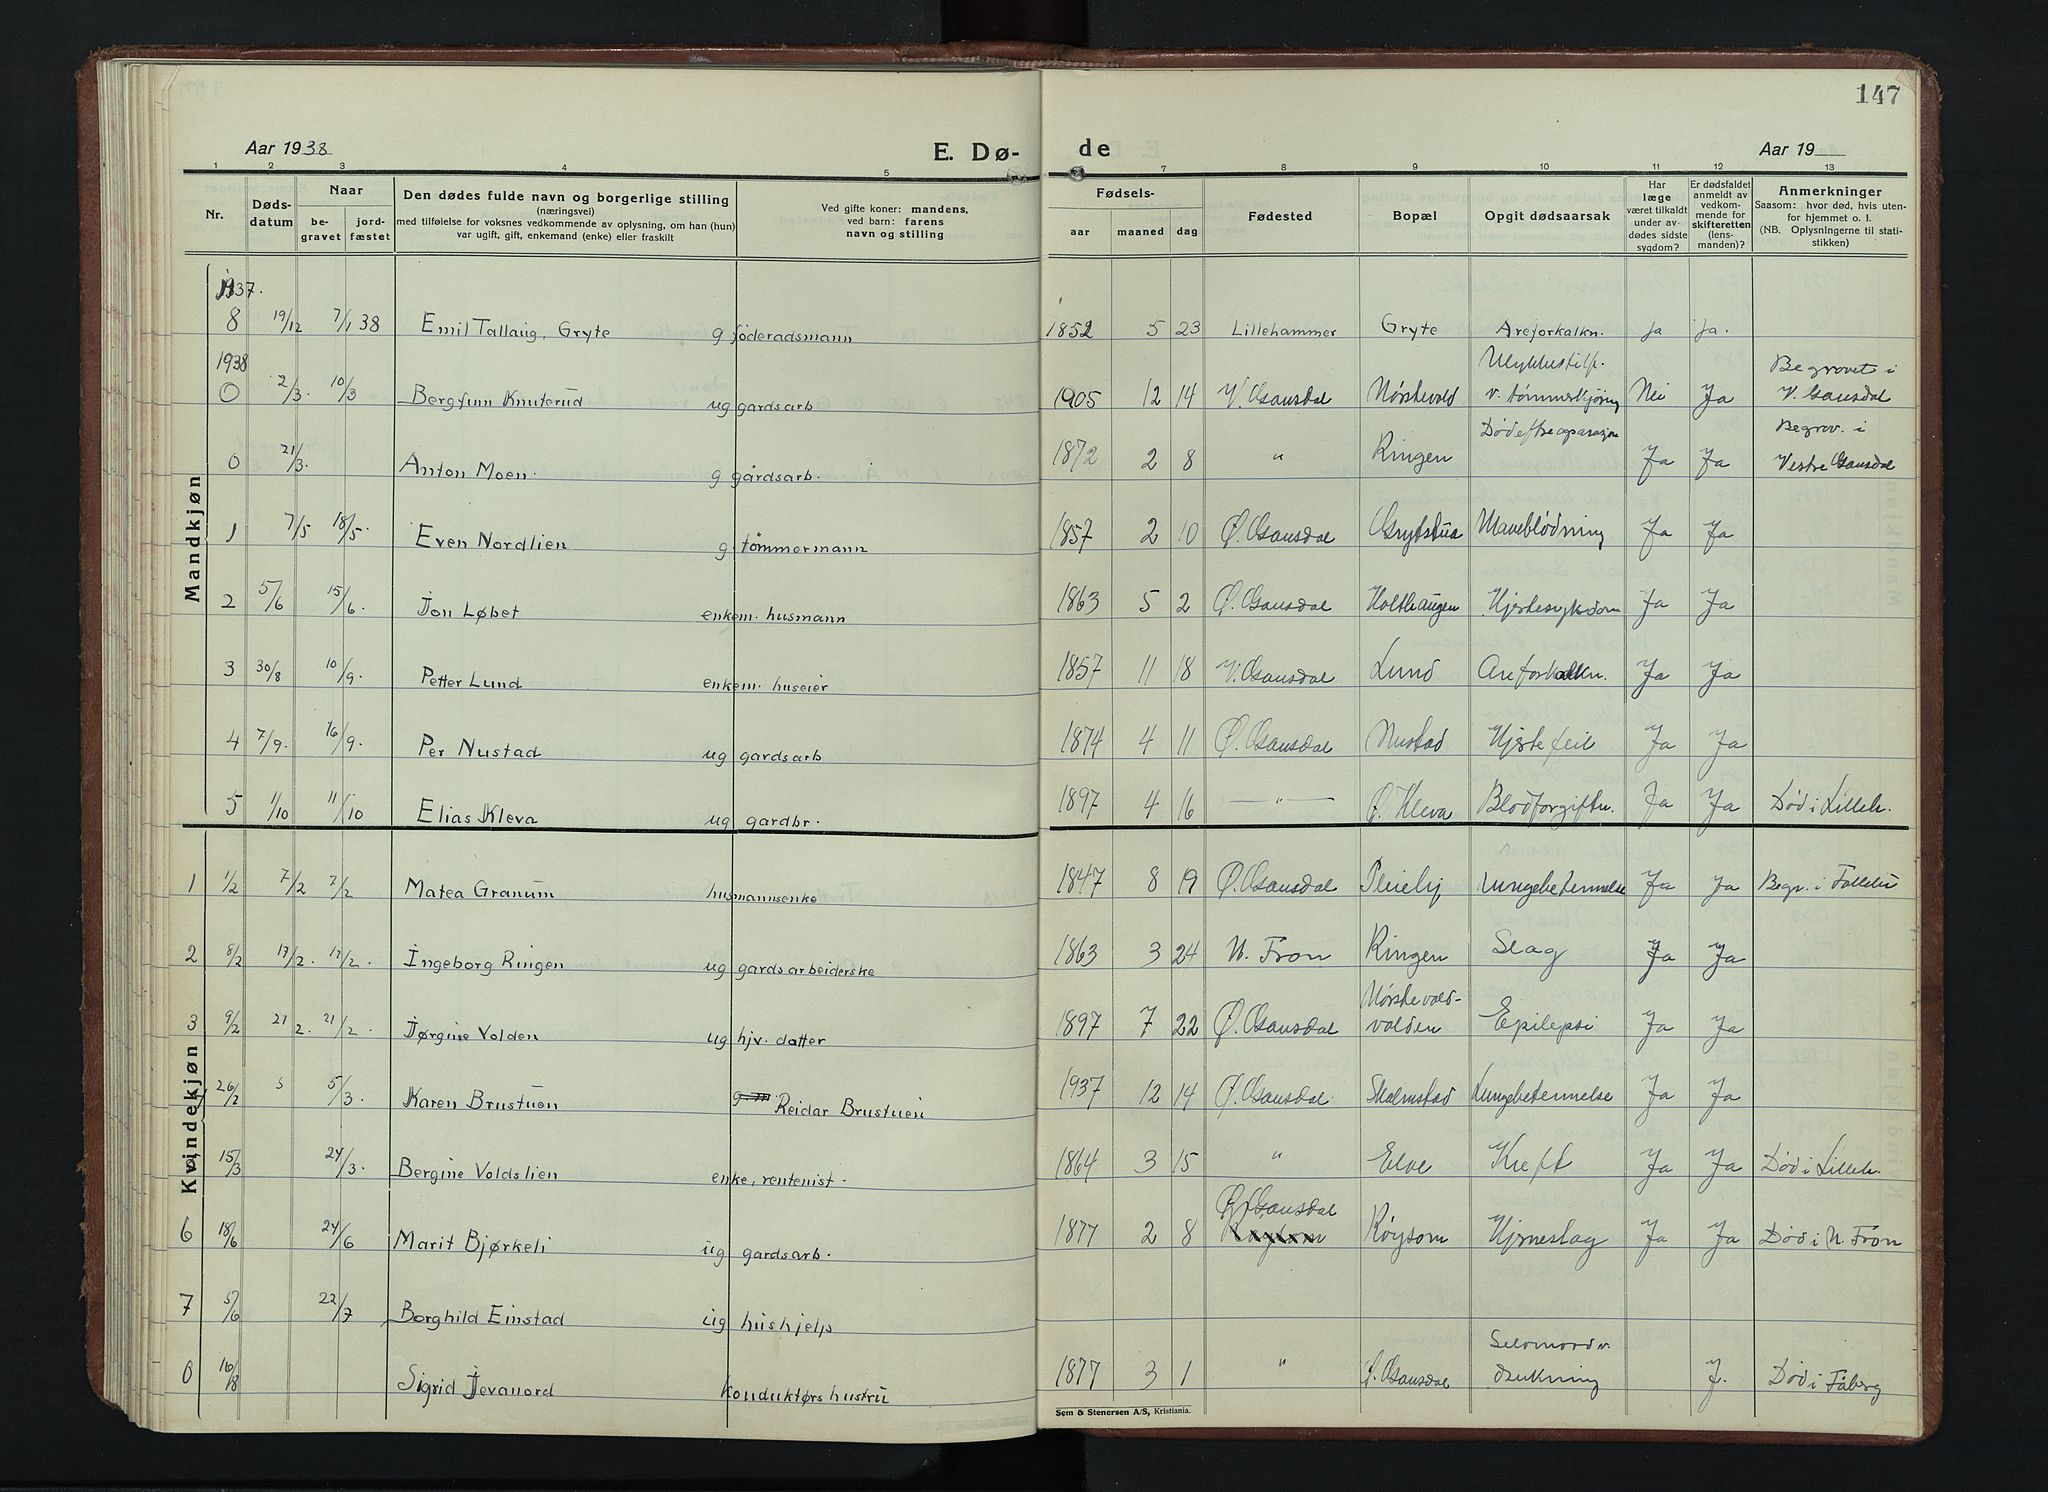 147
Aar 1938 E. Dø- de Aar 19
1 2 3 4 5 6 7 8 9 10 11 12 13
Nr. Døds-datum Naar begravet jordfæstet Den dødes fulde navn og borgerlige stilling (næringsvei) med tilføielse for voksnes vedkommende av oplysning, om han (hun) var ugift, gift, enkemand (enke) eller fraskilt Ved gifte koner: mandens, ved barn: farens navn og stilling Fødsels- aar maaned dag Fødested Bopæl Opgit dødsaarsak Har læge været tilkaldt under avdødes sidste sygdom? Er dødsfaldet anmeldt av vedkommende for skifteretten (lensmanden)? Anmerkninger Saasom: hvor død, hvis utenfor hjemmet o. l. (NB. Oplysningerne til statistikken)
Mandkjøn
1937.
8 19/12 7/1 38 Emil Tallaug, Gryte g føderadsmann 1852 5 23 Lillehammer Gryte Areforkalkn. Ja Ja.
1938
0 2/3. 10/3 Bergfinn Knuterud ug gardsarb 1905 12 14 V. Gausdal Nørstevold Ulykkestilf. v. tømmerkjøring Nei Ja Begravet i V. Gausdal
0 21/3. Anton Moen. g gårdsarb. 1872 2 8 " Ringen Død efter operasjon Ja Ja Begrov. i Vestre Gausdal
1 7/5 18/5. Even Nordlien g. tømmermann 1857 2 10 Ø. Gausdal Grytstua Maveblødning Ja Ja
2 5/6 15/6. Jon Løbet enkem. husmann 1863 5 2 Ø. Gausdal Holthaugen Hjertesykdom Ja Ja
3 30/8 10/9. Petter Lund enkem. huseier 1857 11 18 V. Gausdal Lund Areforkalkn. Ja Ja
4 7/9. 16/9. Per Nustad ug gardsarb 1874 4 11 Ø. Gausdal Nustad Hjertefeil Ja Ja
5 1/10 11/10 Elias Kleva ug gardbr. 1897 4 16 — " — Ø. Kleva Blodforgiftn. Ja Ja Død i Lilleh.
Kvindekjøn
1 1/2 7/2 7/2 Matea Granum husmannsenke 1847 8 19 Ø. Gausdal Pleiehj. Lungebetennelse Ja Ja Begr. i Follebu
2 8/2 17/2. 17/2. Ingeborg Ringen ug gardsarbeiderske 1863 3 24 N. Fron Ringen Slag Ja Ja
3 9/2 21 2. 21/2. Jørgine Volden ug hjv. datter 1897 7 22 Ø. Gausdal Nørstevold-volden Epilepsi Ja Ja
26/2 5 5/3. Karen Brustuen g. Reidar Brustuen 1937 12 14 Ø. Gausdal. Malmstad Lungebetennelse Ja Ja
15/3 24/3. Bergine Voldslien enke, rentenist. 1864 3 15 " Elve Kreft Ja Ja Død i Lilleh.
6 18/6 24/6 Marit Bjørkeli ug gardsarb. 1877 2 8 Ø. Gausdal Røysom Hjerneslag Ja Ja Død i N. Fron
7 5/6 22/7 Borghild Einstad ug hushjelp
0 16/8 Sigrid Jevanord konduktørs hustru 1877 3 1 " Ø. Gausdal Selvmord v. drukning J. Død i Fåberg
Sem & Stenersen A/S, Kristiania.